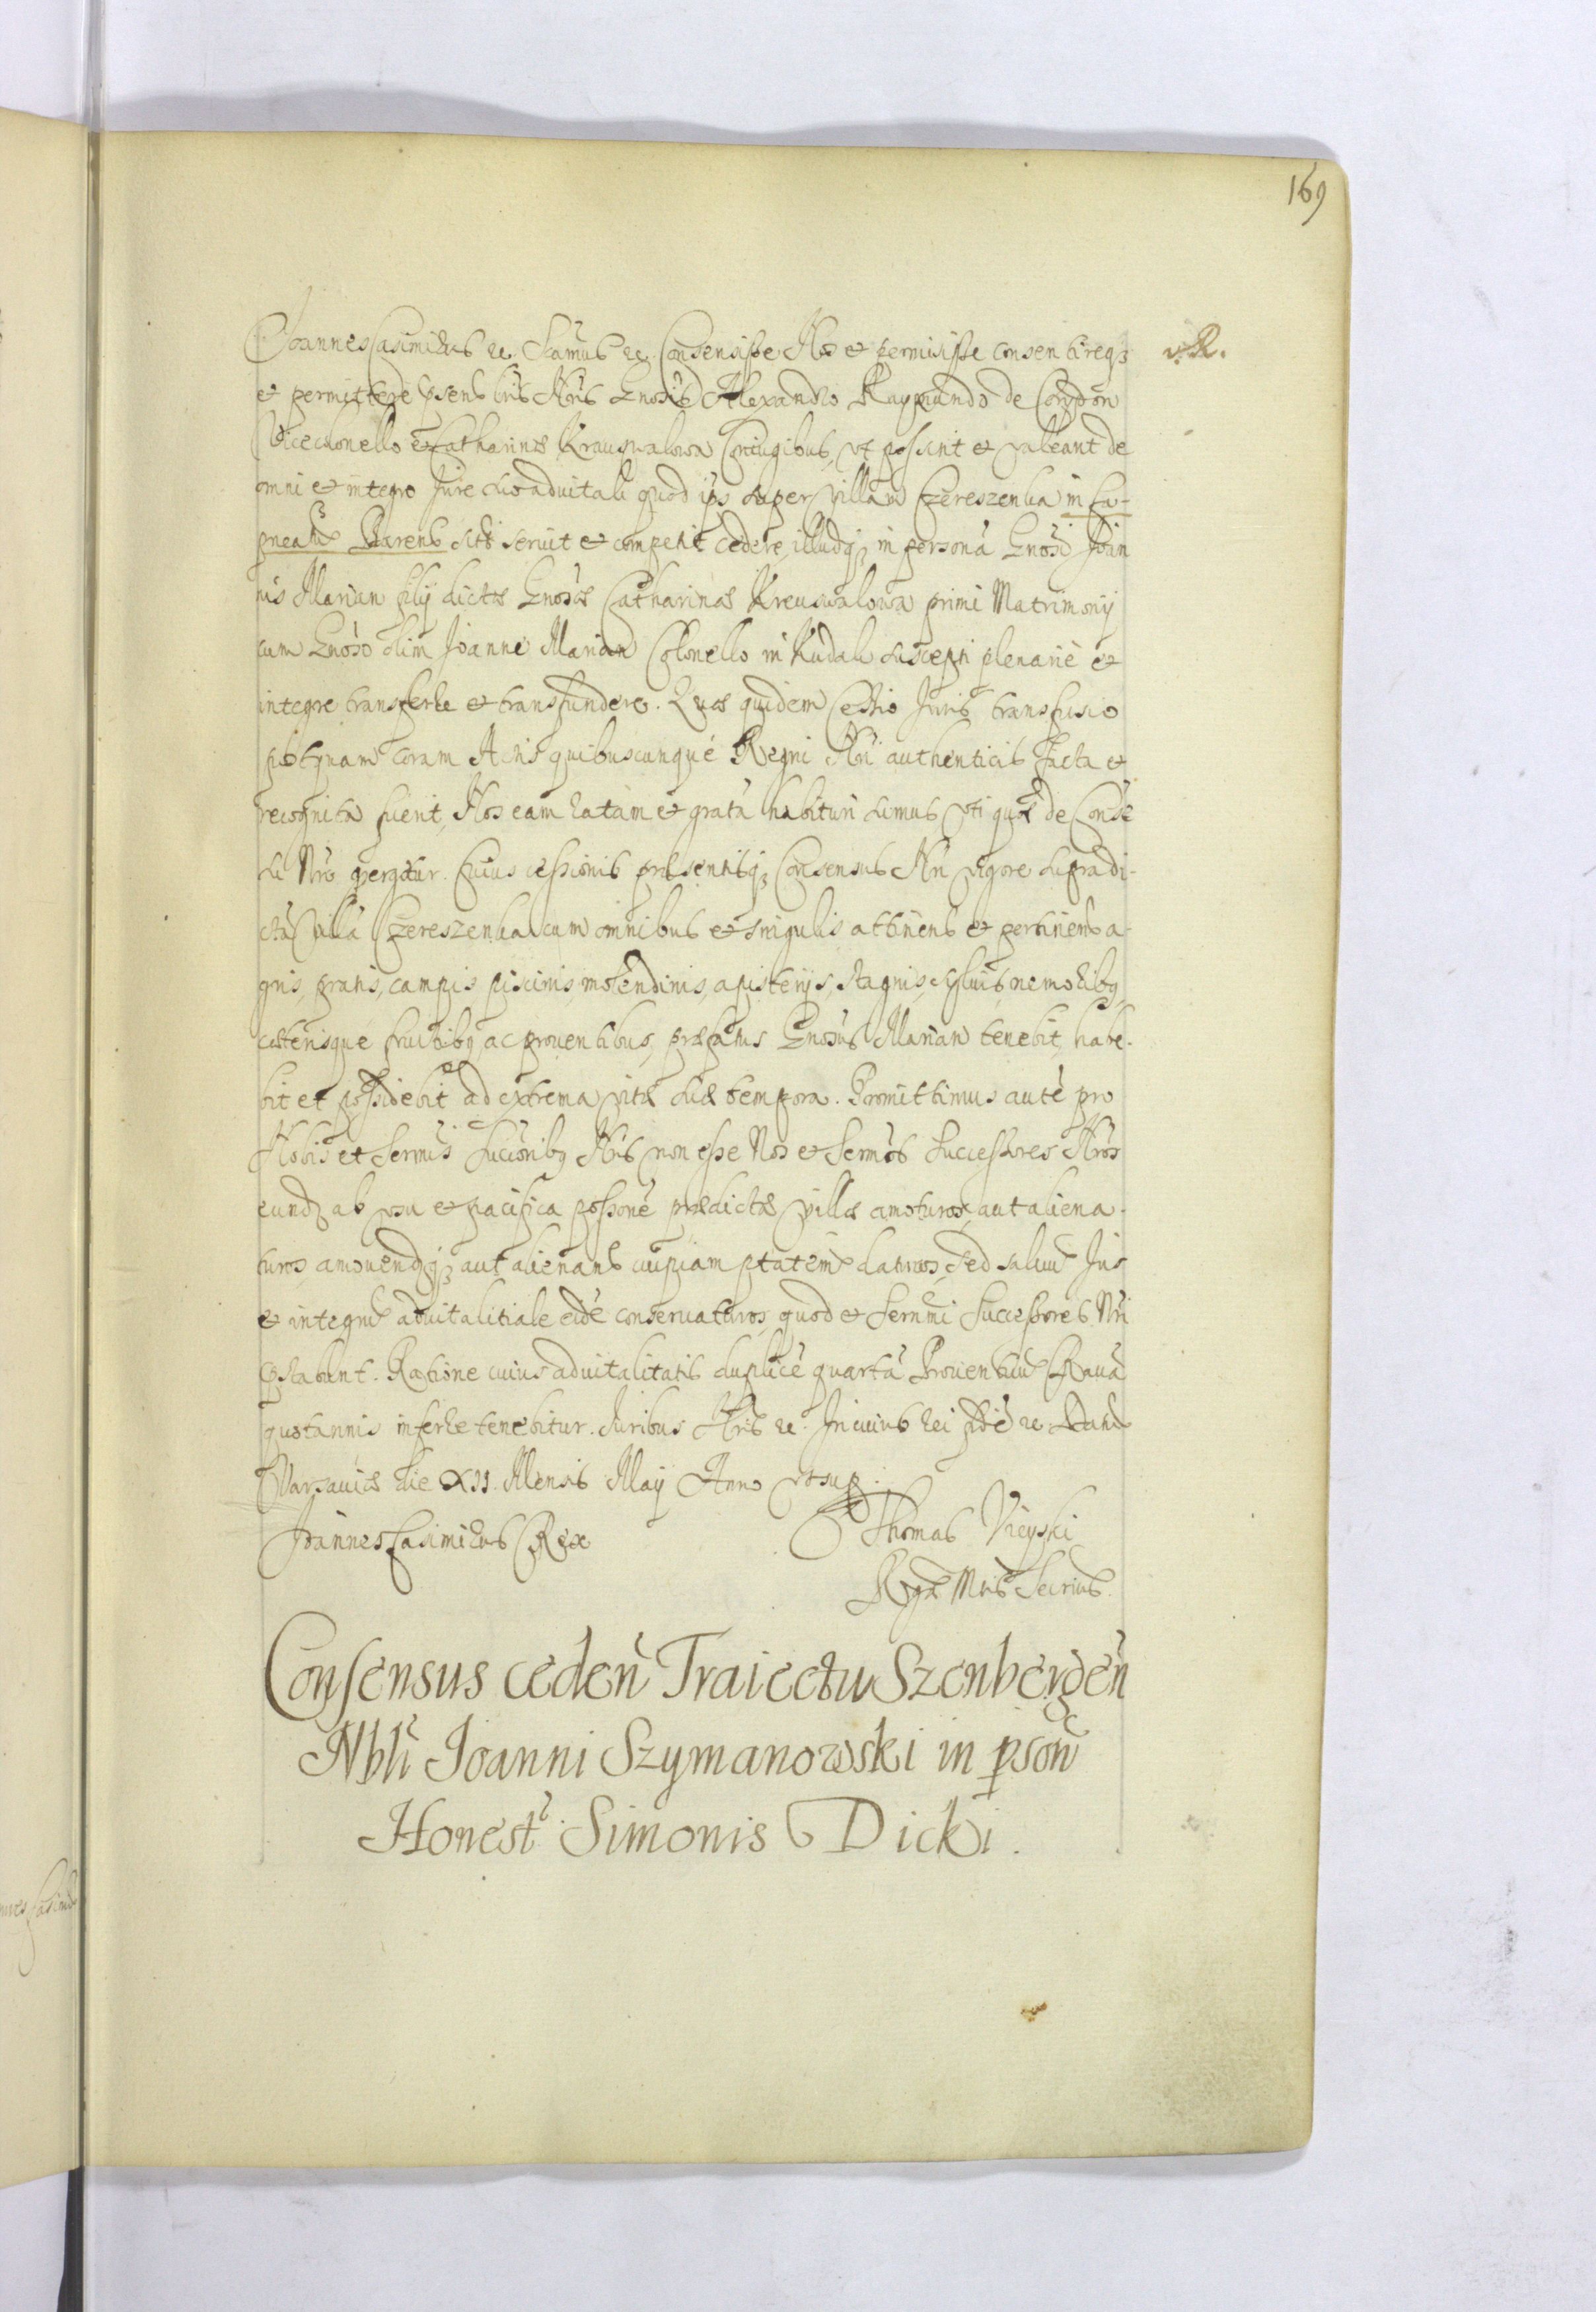 169
Joannes Casimirus etc. Sĉamus etc. Consensisse Nos et permisisse consentireq3 v. R.
et permittere pñsenb lris Nris Gnosis Alexandro Raymundo de Corydon
Vicecolonello et Catharinæ Kreuswalowa Coniugibus, vt possint et valeant de
omni et integro Jure suo aduitali quod ips super villam Czereszenka in Ca-
pneatu Barens sita seruit et competit cedere, illudq3 in personã Gnosi Joan
nis Marian filij dictæ Gnosæ Catharinæ Kreuswalowa primi Matrimonij
cum Gnoso olim Joanne Marian Colonello in Kudak suscepti plenariè et
integre transferre et transfundere. Quæ quidem Cessio Juris transfusio
postquam coram Actis quibuscunque Regni Nri authenticis facta et
recognita fuerit, Nos eam ratam et gratã habituri sumus vti quæ de Conse
su Nro pergitur. Cuius cessionis præsentisq3 Consensus Nri vigore supradi-
ctã villã Czereszenka cum omnibus et singulis attinens et pertinens a-
gris, pratis, campis, piscinis, molendinis, apisterijs, stagnis, syluis, nemoribq,
cæterisque fructibq ac prouentibus, præfatus Gnosus Marian tenebit, habe-
bit et possidebit ad extrema vitæ suæ tempora. Promittimus autẽ pro
Nobis et Sermis Succoribq Nris non esse Nos et Sermos Successores Nros
eund ab vsu et pacifica possone prædictæ villæ amoturos, aut aliena-
turos amouendq3 aut alienand cuipiam ptatem daturos, sed saluũ Jus
et integrũ aduitalitiale eidẽ conseruaturos, quod et Sermi Successores Nri
pstabunt. Ratione cuius aduitalitatis duplicẽ quartã Prouentuũ Rauã
quotannis inferre tenebitur. Juribus Nris etc. In cuius rei fidẽ etc. Datũ
Varsauiæ die XII. Mensis Maij Anno vt sup.
Joannes Casimirus Rex Thomas Vieyski
Regæ Mtis Secrius
Consensus cedeñ Traiectu Szenbergeñ
Nbli Joanni Szymanowski in psoñ
Honest. Simonis Dicki.